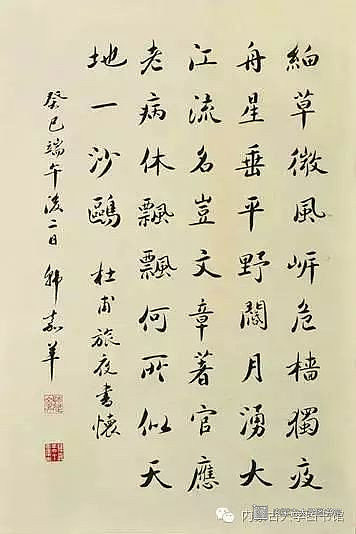 細草微風岸危檣獨夜
舟星垂平野闊月湧大
江流名豈文章著官應
老病休飄飄何所似天
地一沙鷗 杜甫旅夜書懷
癸巳端午後二日 韓嘉羊
内蒙古大学图书馆